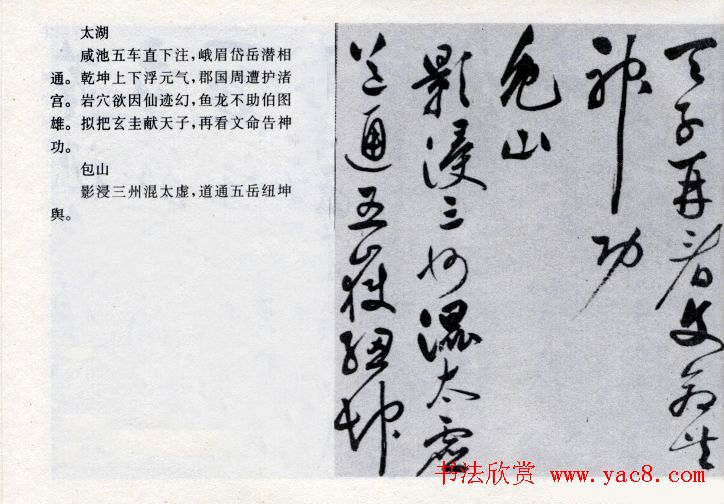 太湖
咸池五车直下注，峨眉岱岳潜相
通。乾坤上下浮元气，郡国周遭护渚
宫。岩穴欲因仙迹幻，鱼龙不助伯图
雄。拟把玄圭献天子，再看文命告神
功。
包山
影浸三州混太虚，道通五岳纽坤
舆。
天子再看文命告
神功
包山
影浸三州混太虚
道通五嶽纽坤
书法欣赏 www.yac8.com